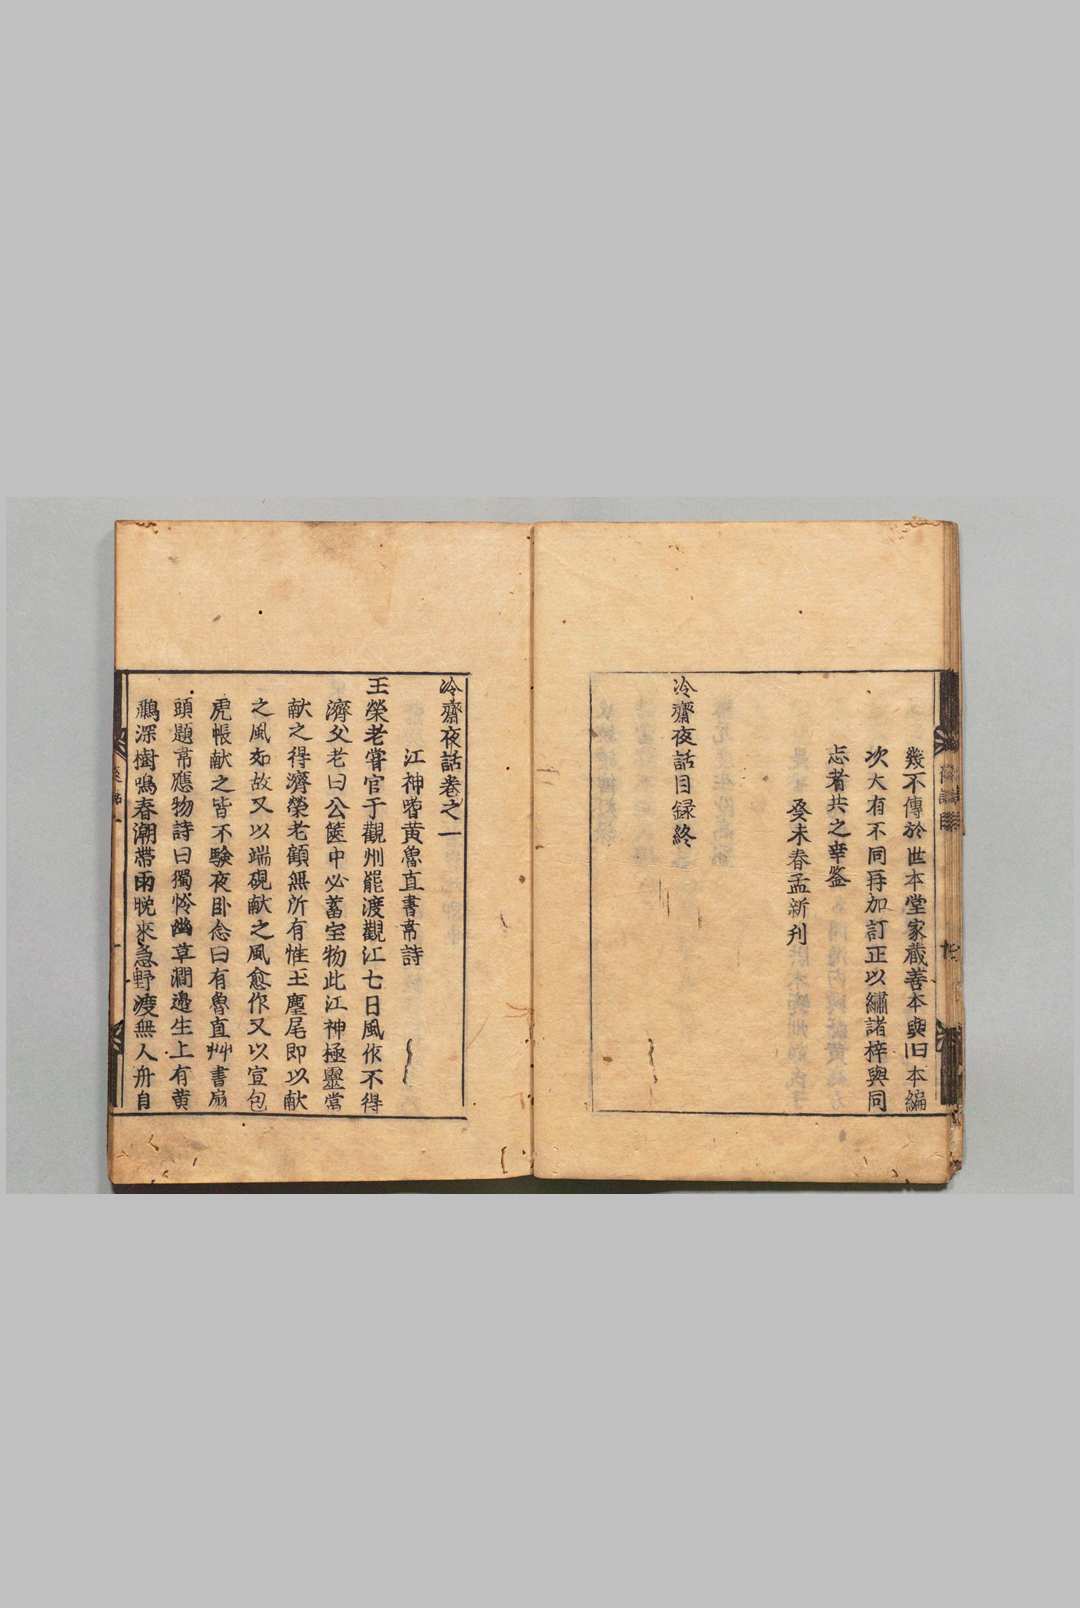 幾不傳於世本堂家蔵善本與旧本編
次大有不同再加訂正以繡諸梓與同
志者共之幸鉴
癸未春孟新刊
冷齋夜話目録終
冷齋夜話卷之一
江神嗜黄魯直書韋詩
王榮老嘗官于觀州罷渡觀江七日風作不得
濟父老曰公篋中必蓄宝物此江神極靈當
献之得濟榮老顧無所有惟玉麈尾即以献
之風如故又以端硯献之風愈作又以宣包
虎帳献之皆不験夜卧念曰有魯直艸書扇
頭題韋應物詩曰獨怜幽草澗邊生上有黄
鸝深樹鳴春潮帶雨晚來急野渡無人舟自